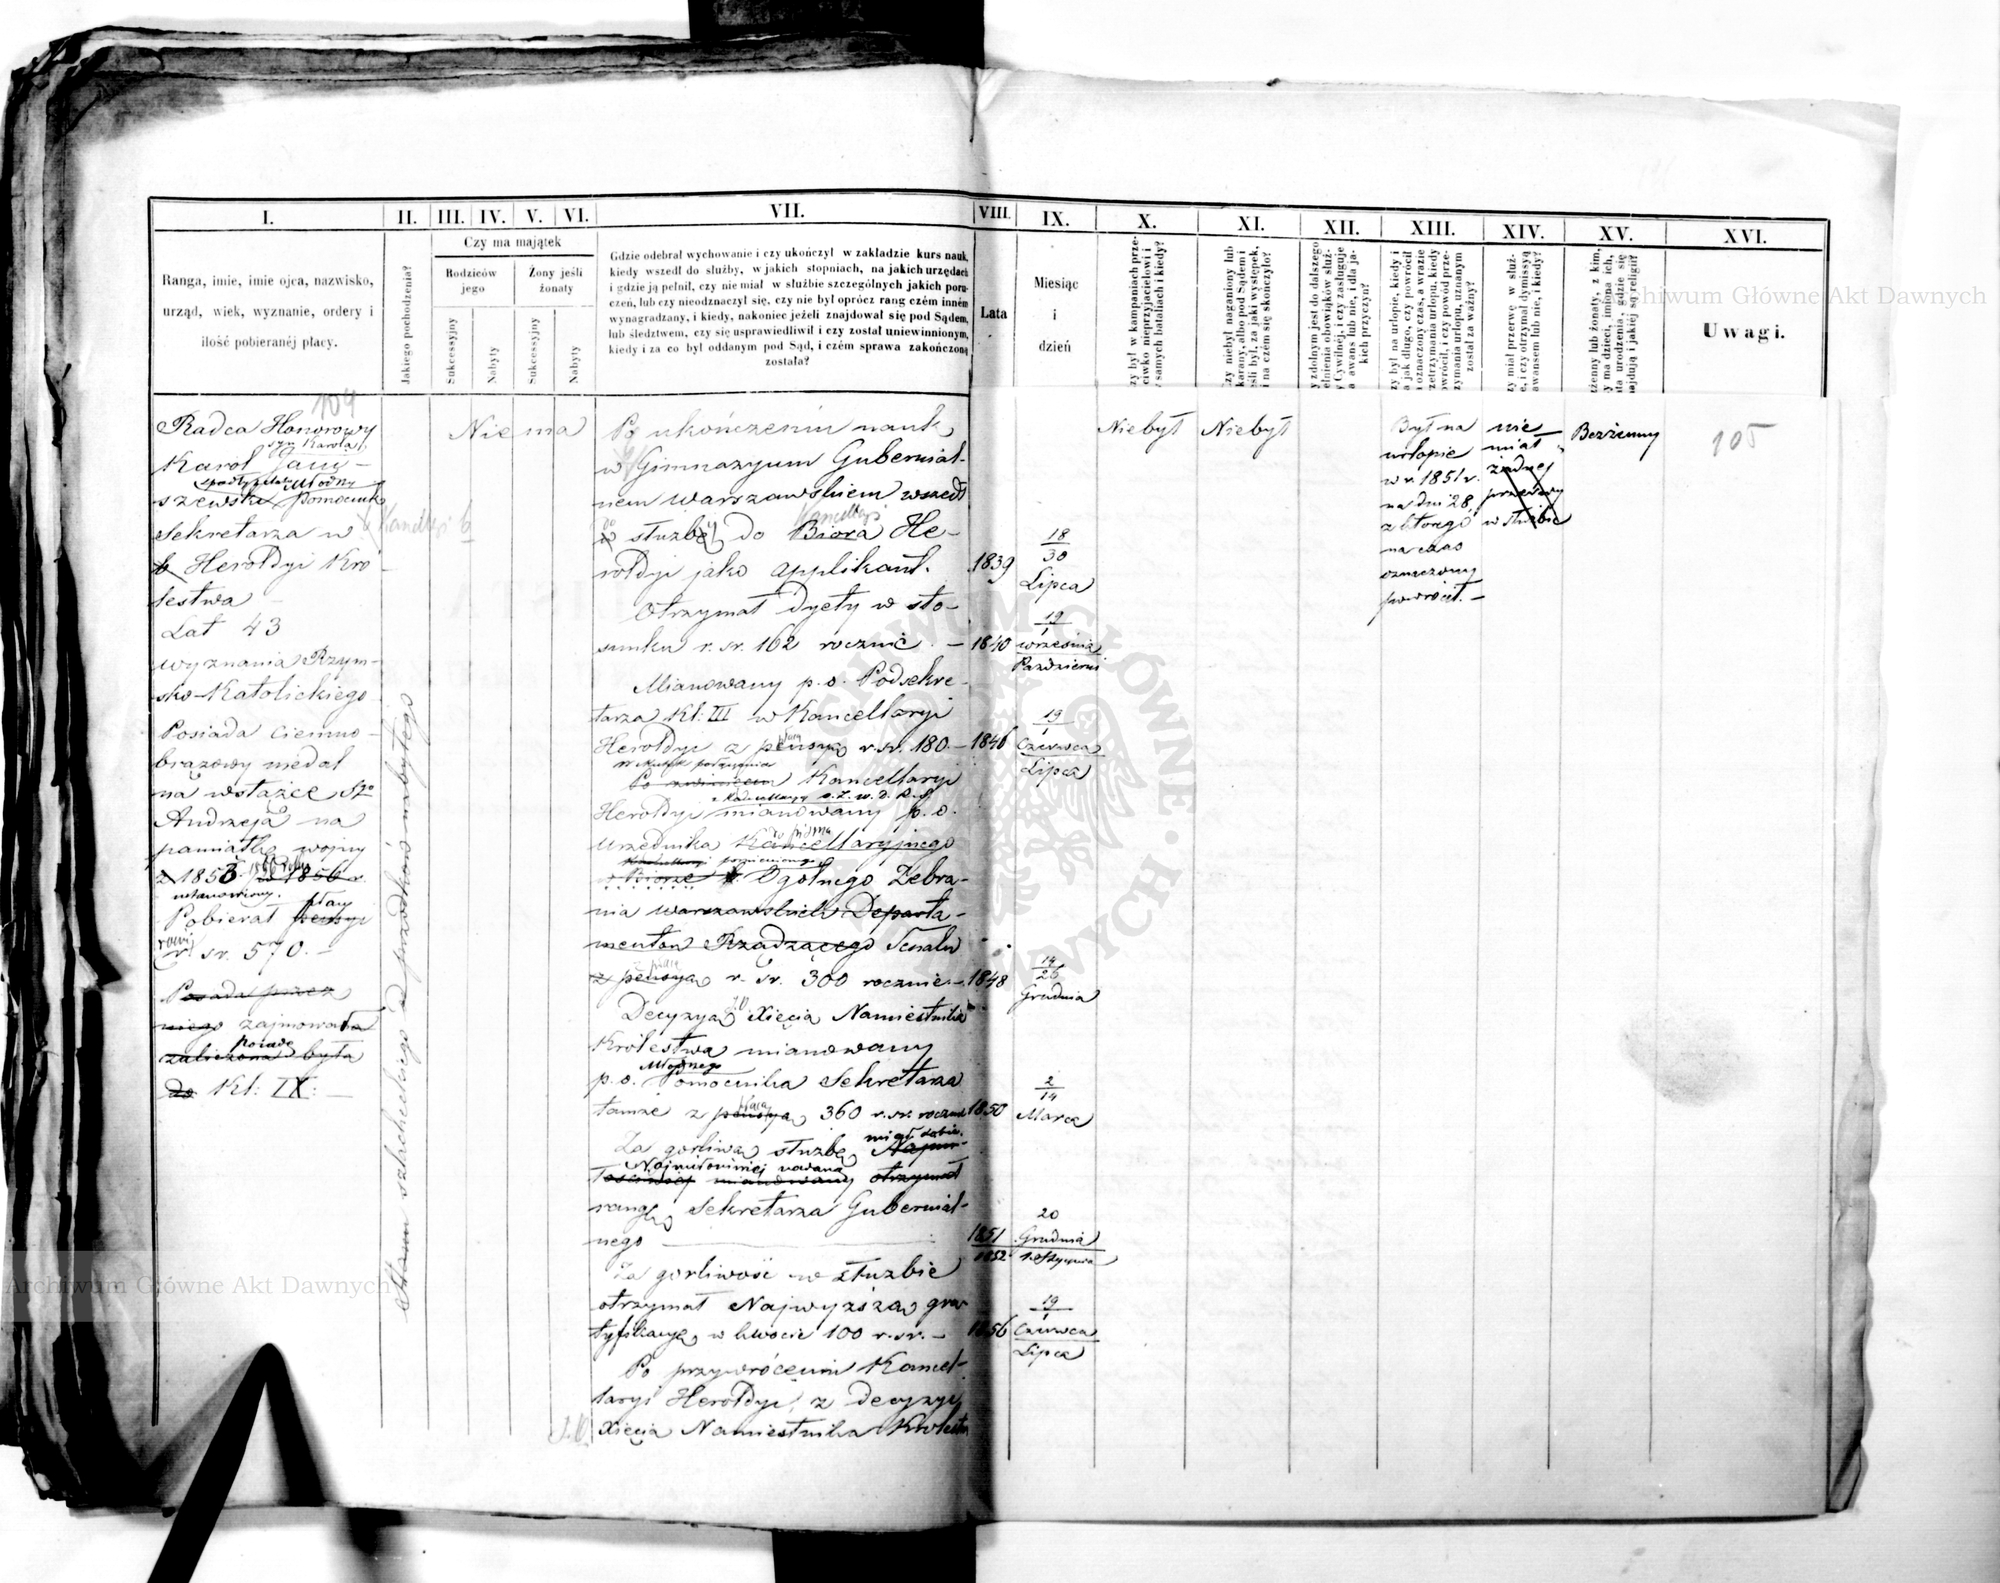 I.
II.
III.
IV.
V.
VI.
VII.
VIII.
IX.
X.
XI.
XII.
XIII.
XIV.
XV.
XVI.
Ranga, imie, imie ojca, nazwisko,
urząd, wiek, wyznanie, ordery i
ilość pobieranéj płacy.
Jakiego pochodzenia?
Czy ma majątek
Rodziców
jego
Żony jeśli
żonaty
Sukcessyjny
Nabyty
Sukcessyjny
Nabyty
Gdzie odebrał wychowanie i czy ukończył w zakładzie kurs nauk,
kiedy wszedł do służby, w jakich stopniach, na jakich urzędach
i gdzie ją pełnił, czy nie miał w służbie szczególnych jakich poru-
czeń, lub czy nieodznaczył się, czy nie był oprócz rang czém inném
wynagradzany, i kiedy, nakoniec jeżeli znajdował się pod Sądem,
lub śledztwem, czy się usprawiedliwił i czy został uniewinnionym,
kiedy i za co był oddanym pod Sąd, i czém sprawa zakończoną
została?
Lata
Miesiąc
i
dzień
zy był w kampaniach prze-
ciwko nieprzyjacielowi i
samych bataliach i kiedy?
zy niebył naganiony lub
karany, albo pod Sądem i
śli był, za jaki występek,
i na czém się skończyło?
y zdolnym jest do dalszego
ełnienia obowiąków służ-
y Cywilnej, i czy zasługuje
a awans lub nie, i dla ja-
kich przyczyn?
zy był na urlopie, kiedy i
a jak długo, czy powrócił
i oznaczony czas, a w razie
zetrzymania urlopu, kiedy
owrócił, i czy powód prze-
zymania urlopu, uznanym
został za ważny?
zy miał przerwę w służ-
ie, i czy otrzymał dymissyą
awansem lub nie, i kiedy?
żenny lub żonaty, z kim,
y ma dzieci, imiona ich,
ata urodzenia, gdzie się
najdują i jakiéj są religii?
Uwagi.
104
Radca Honorowy
syn Karola
Karol Jani-
Młodszy
szewski Pomocnik
Sekretarza w Kancellaryi
b Herołdyi Kró-
lestwa
Lat 43
wyznania Rzym-
sko-Katolickiego
Posiada ciemno-
brązowy medal
na wstążce Sgo
Andrzeja na
pamiątkę wojny
z 1853 1856 r.
ustanowiony.
płacy
Pobierał pensyi
r. sr. 570.
Posada przez
niego zajmowana
Posada
zaliczona była
do Kl: IX:
Stanu szlacheckiego od przodków nabytego
Niema
Po ukończeniu nauk
w Gimnazyum Gubernial-
nem Warszawskiem wszedł
Kancellaryi
w służbę do Biora He-
rołdyi jako applikant.
1839
18
30
Lipca
Otrzymał dyety w sto-
sunku r. sr. 162 rocznie.
1840
19
1
września
Październi
Mianowany p. o. Podsekre-
tarza Kl: III w Kancellaryi
Herołdyi z pensyą r. sr. 180.
płacą
1846
19
1
Czerwca
Lipca
w skutek połączenia
Po zwinięciu Kancellaryi
Herołdyi mianowany p. o.
do pisma
Urzędnika Kancellaryjnego
w Biorze Ogólnego Zebra-
nia Warszawskich Departa-
mentów Rządzącego Senatu
płacą
z pensyą r. sr. 300 rocznie.
1848
14
26
Grudnia
Decyzyą JO Xięcia Namiestnika
Królestwa mianowany
Młodszego
p. o. Pomocnika Sekretarza
płacą
tamże z pensyą 360 r. sr. roczn
1850
2
14
Marca
Za gorliwą służbę
Najmiłościwiej nadaną
mianowany otrzymał
rangę Sekretarza Gubernial-
nego
1851
1852
20
Grudnia
1 Stycznia
Za gorliwość w służbie
otrzymał Najwyższą gra-
tyfikacyą w kwocie 100 r. sr.
1856
19
1
Czerwca
Lipca
Po przywróceniu Kancel-
laryi Herołdyi, z decyzyi
J.O. Xięcia Namiestnika Królestw
Niebył
Niebył
Był na
urlopie
w r. 1851 r.
na dni 28,
z którego
na czas
oznaczony
powrócił.
nie
miał
żadnej
przerwy
w służbie
Bezżenny
105
Archiwum Główne Akt Dawnych
Archiwum Główne Akt Dawnych
ARCHIWUM GŁÓWNE AKT DAWNYCH